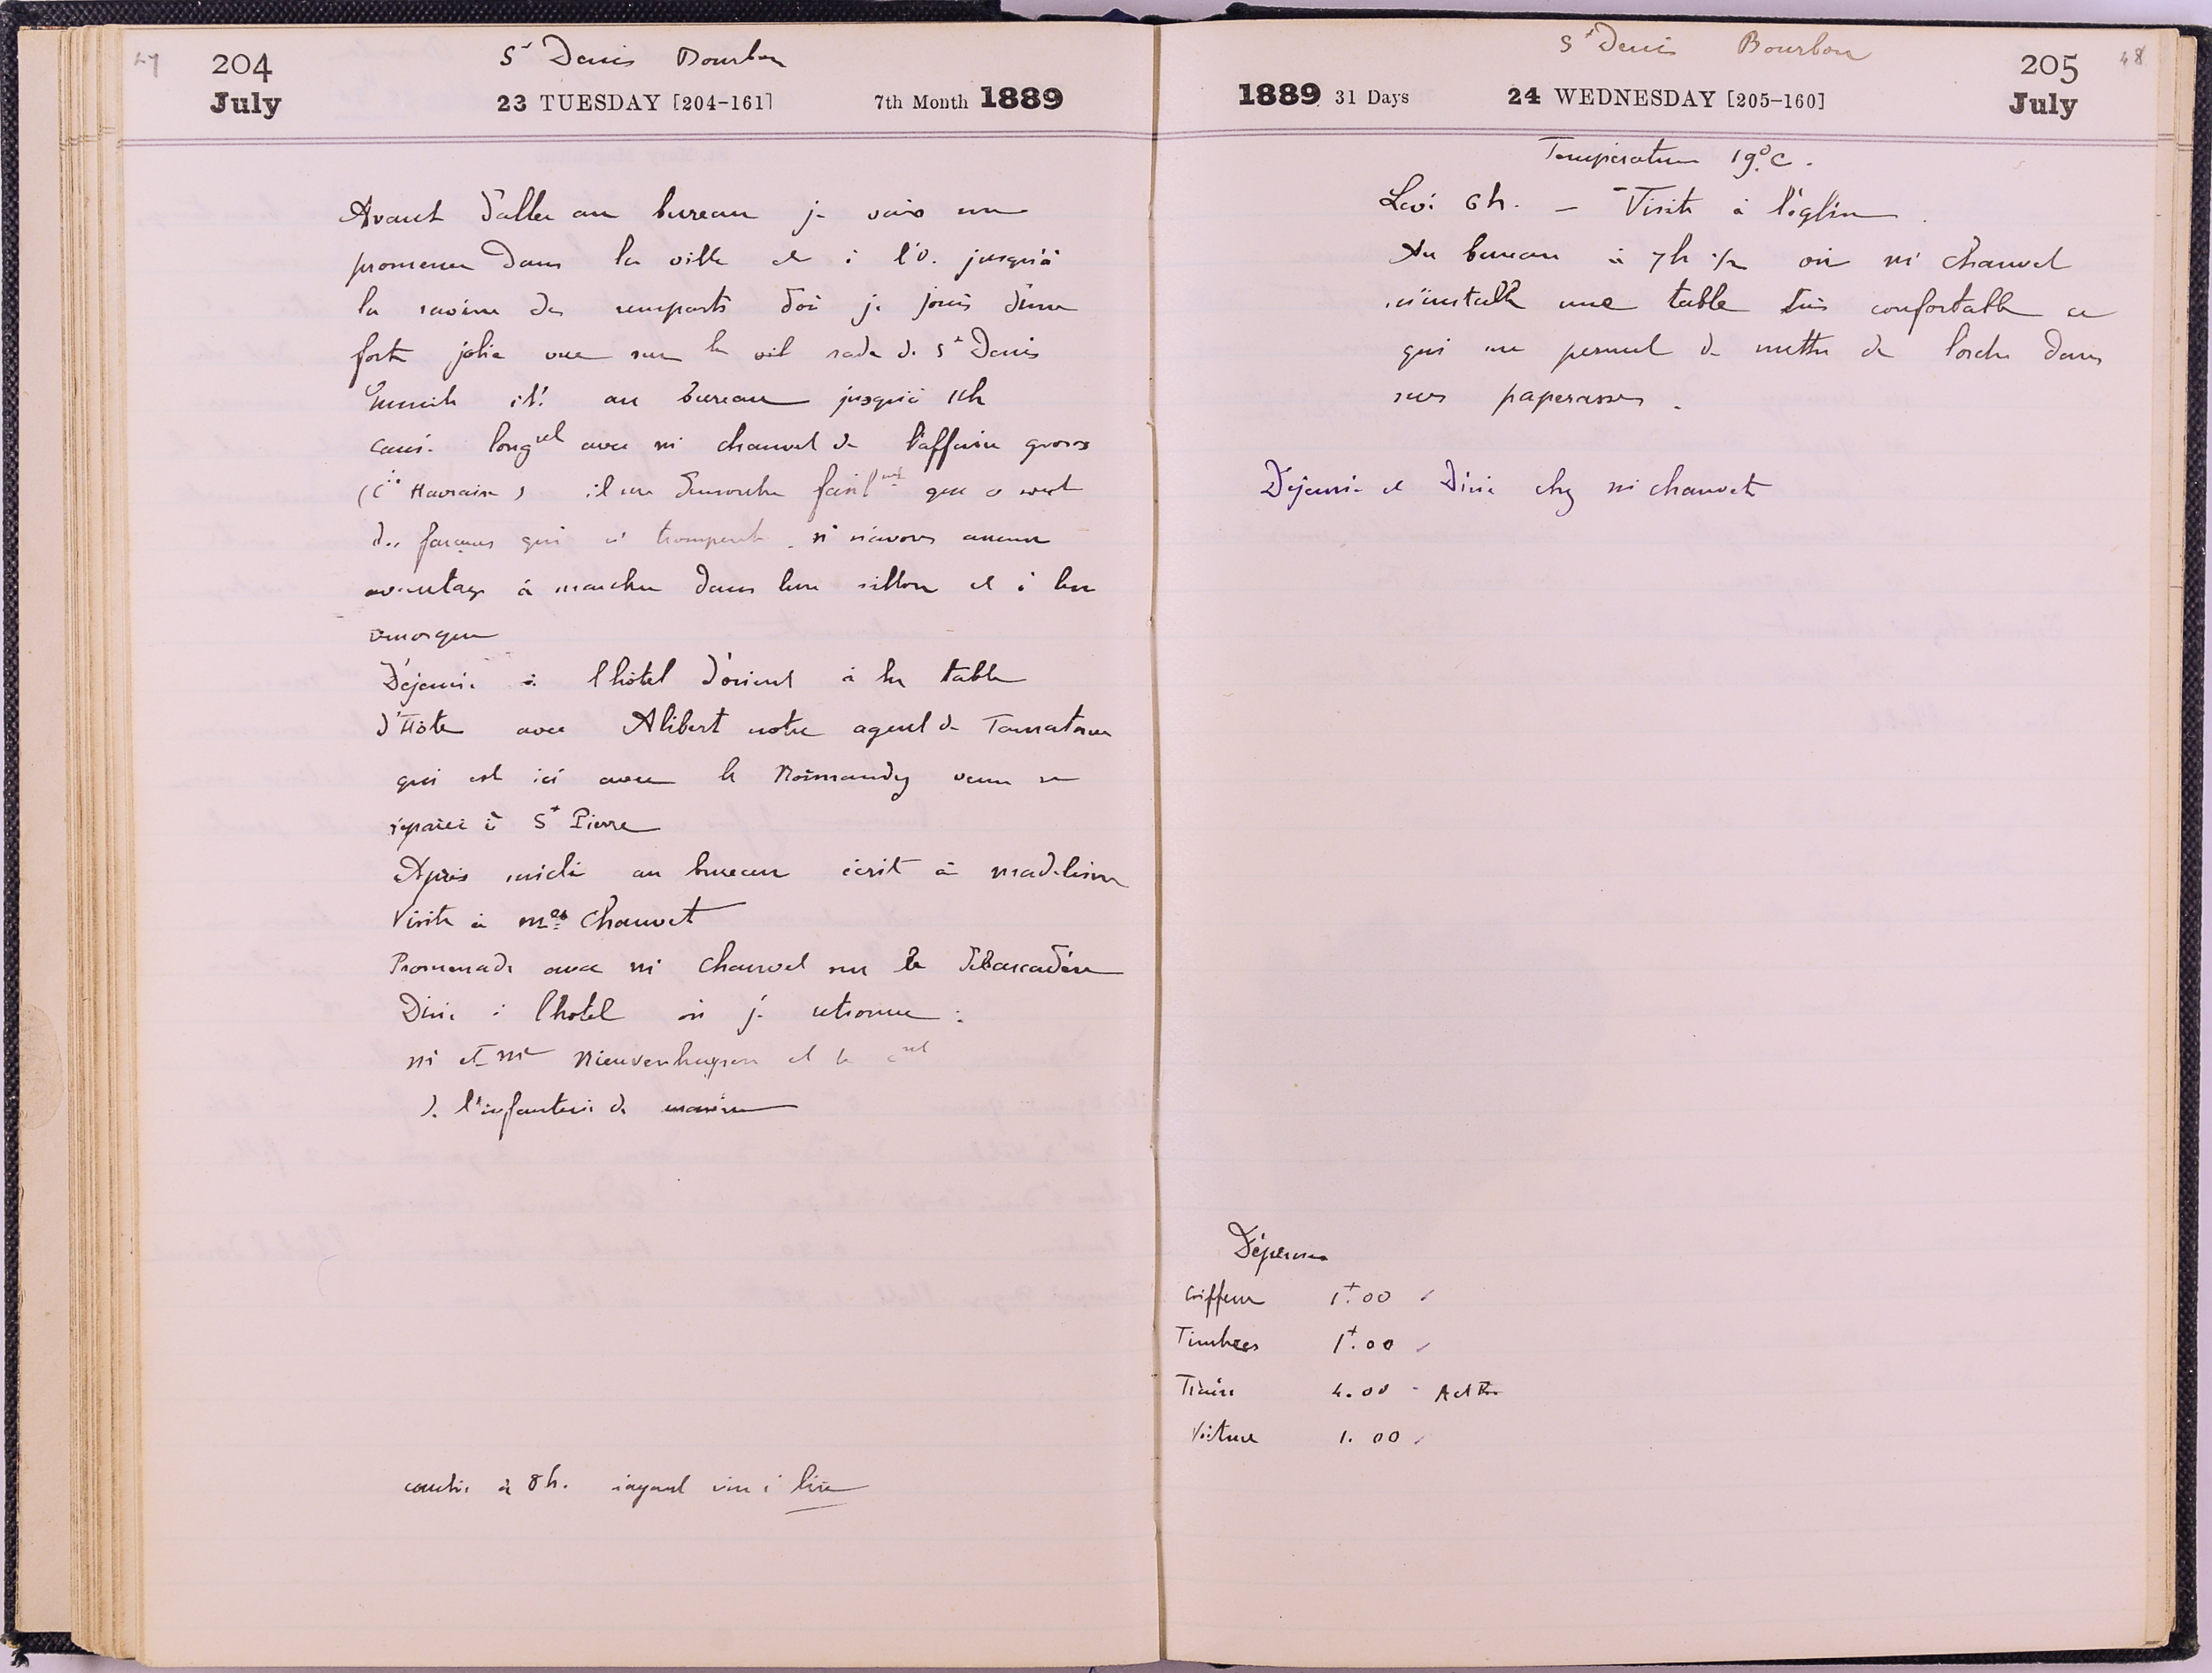 27
204
July
St Denis Bourbon
23 TUESDAY [204-161]
7th Month 1889
Avant d'aller au bureau je vais me
promener dans la ville et à l'O. jusqu'à
la ravine des remparts d'où je jouis d'une
forte jolie vue sur la rade de St Denis
Ensuite été au bureau jusqu'à
Causé longuet avec mr Chauvet de l'affaire grosos
(Cie Havraise) il me démontre facilmt que ce sont
des farceurs qui ns trompent. ns n'avons aucun
avantage à marcher dans leur sillon et à leur
remorque
Déjeuné à l'hôtel d'orient à la table
d'Hôte avec Alibert notre agent de Tamatave
qui est ici avec le Normandy venu se
réparer à St Pierre
Après midi au bureau écrit à madeleine
Visite à mes Chauvet
Promenade avec mr Chauvet sur le débarcadère
Diné à l'hotel où je retrouve :
mr et me Nieuvenhuysen et le
de l'infanterie de marine
couché à 8h. n'ayant rien à lire
1889 31 Days
St Denis Bourbon
24 WEDNESDAY [205-160]
205
July
48
Température 19°C.
Levé 6h. – Visite à l'église.
Au bureau à 7h 1/2 où mr Chauvet
m'installe une table très confortable ce
qui me permet de mettre de l'ordre dans
mes paperasses.
Déjeuné et Diné chez mr chauvet
Dépenses
Coiffeur 1f.00
Timbres 1f.00
Train 4.00 -
Voiture 1.00